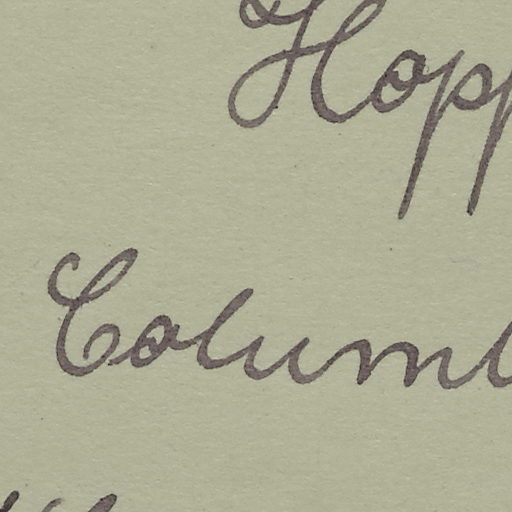 Hopp
Columb